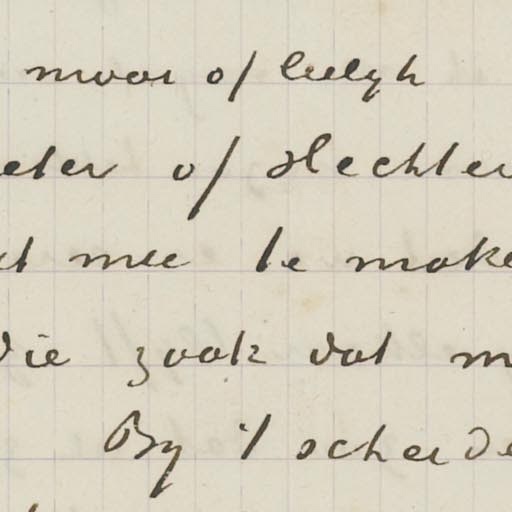 mooi of leelyk
eter of slechter
et mee te make
die zaak dat m
By 't scheide